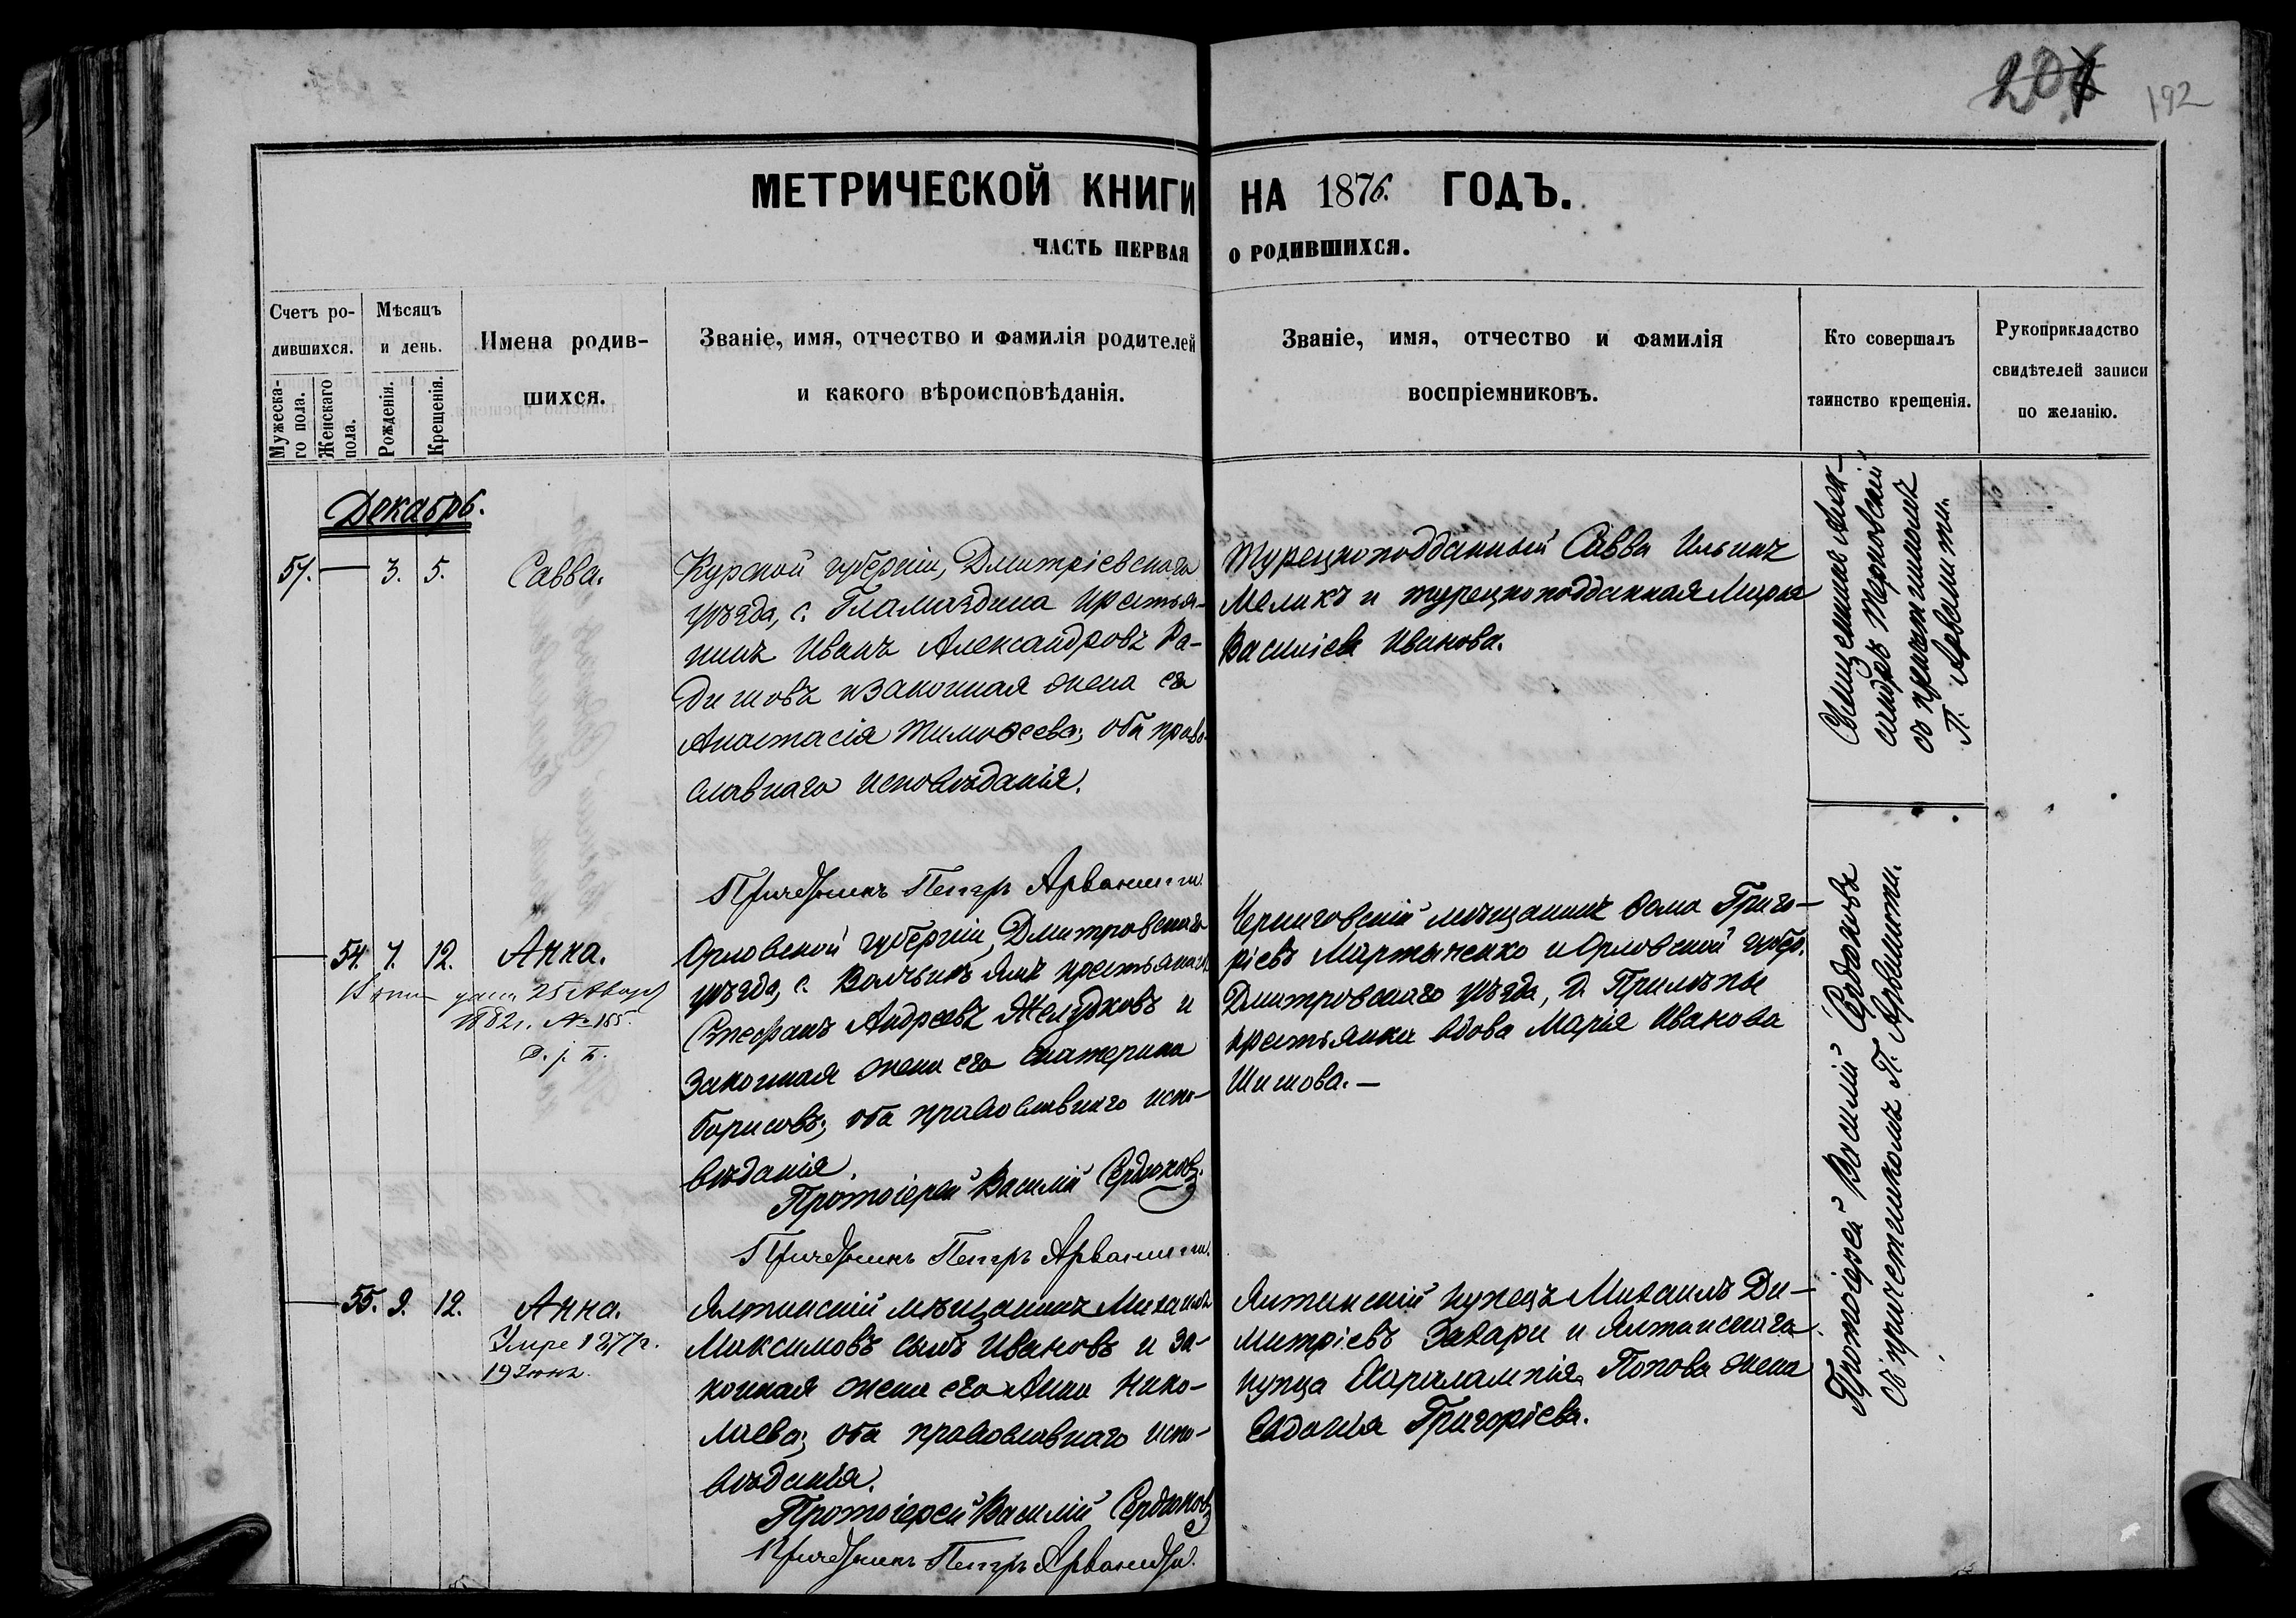 192
МЕТРИЧЕСКОЙ КНИГИ НА 1876. ГОДЪ.
ЧАСТЬ ПЕРВАЯ О РОДИВШИХСЯ.
Счетъ ро-
дившихся.
Мужеска-
го пола.
Женскаго
пола.
Мѣсяцъ
и день.
Рожденія.
Крещенія.
Имена родив-
шихся.
Званіе, имя, отчество и фамилія родителей
и какого вѣроисповѣданія.
Званіе, имя, отчество и фамилія
воспріемниковъ.
Кто совершалъ
таинство крещенія.
Рукоприкладство
свидѣтелей записи
по желанію.
Декабрь.
57. 3. 5. Савва.
Курской губерніи, Дмитріевскаго
уѣзда, с. Гламаздина крестья-
нинъ Иванъ Александровъ Ра-
диновъ и законная жена его
Анастасія Тимоѳеева; оба право-
славнаго исповѣданія.
Причетникъ Петръ Арванити.
Турецкоподданный Савва Ильичъ
Меликъ и турецкоподданная Марья
Василіева Иванова.
Священникъ Алек-
сандръ Терновскій
съ причетникомъ
П. Арванити.
54. 7. 12. Анна.
25 Января
1882 г. № 185.
Орловской губерніи, Дмитровскаго
уѣзда, с. Волчьихъ Ямъ крестьянинъ
Стефанъ Андреевъ Желудковъ и
законная жена его Екатерина
Борисовъ; оба православнаго испо-
вѣданія.
Протоіерей Василій Сердюковъ.
Причетникъ Петръ Арванити.
Черниговскій мѣщанинъ Ѳома Григо-
ріевъ Мартыненко и Орловской губер.
Дмитровскаго уѣзда, д. Прилѣпы
крестьянка вдова Марія Иванова
Шишова.—
55. 9. 12. Анна.
Умре 1877 г.
19 Іюня.
Ялтинскій мѣщанинъ Михаилъ
Максимовъ сынъ Ивановъ и за-
конная жена его Анна Нико-
лаева; оба православнаго испо-
вѣданія.
Протоіерей Василій Сердюковъ
Причетникъ Петръ Арванити.
Ялтинскій купецъ Михаилъ Ди-
митріевъ Захари и Ялтинскаго
купца Харалампія Попова жена
Евдокія Григоріева.
Протоіерей Василій Сердюковъ
съ причетникомъ П. Арванити.